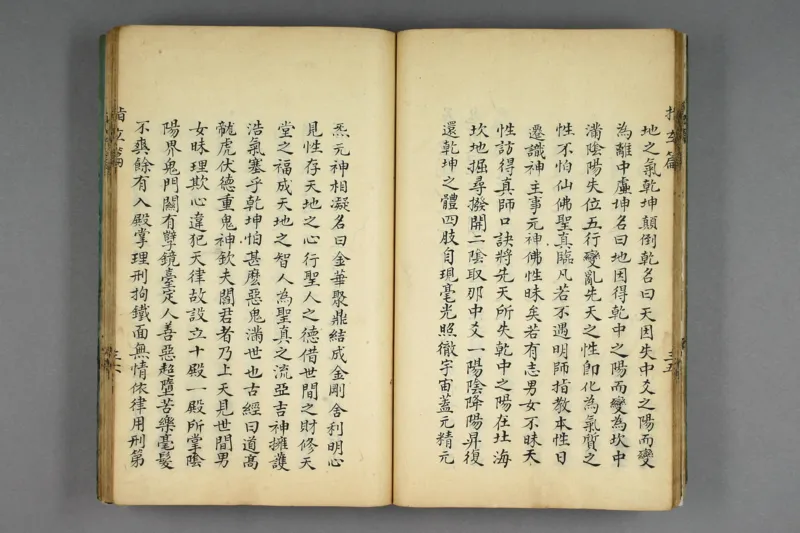 地之氣乾坤顛倒乾名曰天因失中爻之陽而變
為離中虛坤名曰地因得乾中之陽而變為坎中
滿陰陽失位五行變亂先天之性卽化為氣質之
性不怕仙佛聖真臨凡若不遇明師指教本性日
遷識神主事元神佛性昧矣若有志男女不昧天
性訪得真師口訣將先天所失乾中之陽在北海
坎地掘尋撥開二陰取那中爻一陽陰降陽昇復
還乾坤之體四肢自現毫光照徹宇宙蓋元精元
炁元神相凝名曰金華聚鼎結成金剛舍利明心
見性存天地之心行聖人之德借世間之財修天
堂之福成天地之智人為聖真之流亞吉神擁護
浩氣塞乎乾坤怕甚麽惡鬼滿世也古經曰道高
龍虎伏德重鬼神欽夫閻君者乃上天見世間男
女昧理欺心違犯天律故設立十殿一殿所掌陰
陽界鬼門關有孽鏡臺定人善惡超墮苦樂毫髮
不爽餘有入殿掌理刑拘鐵面無情依律用刑第
三六